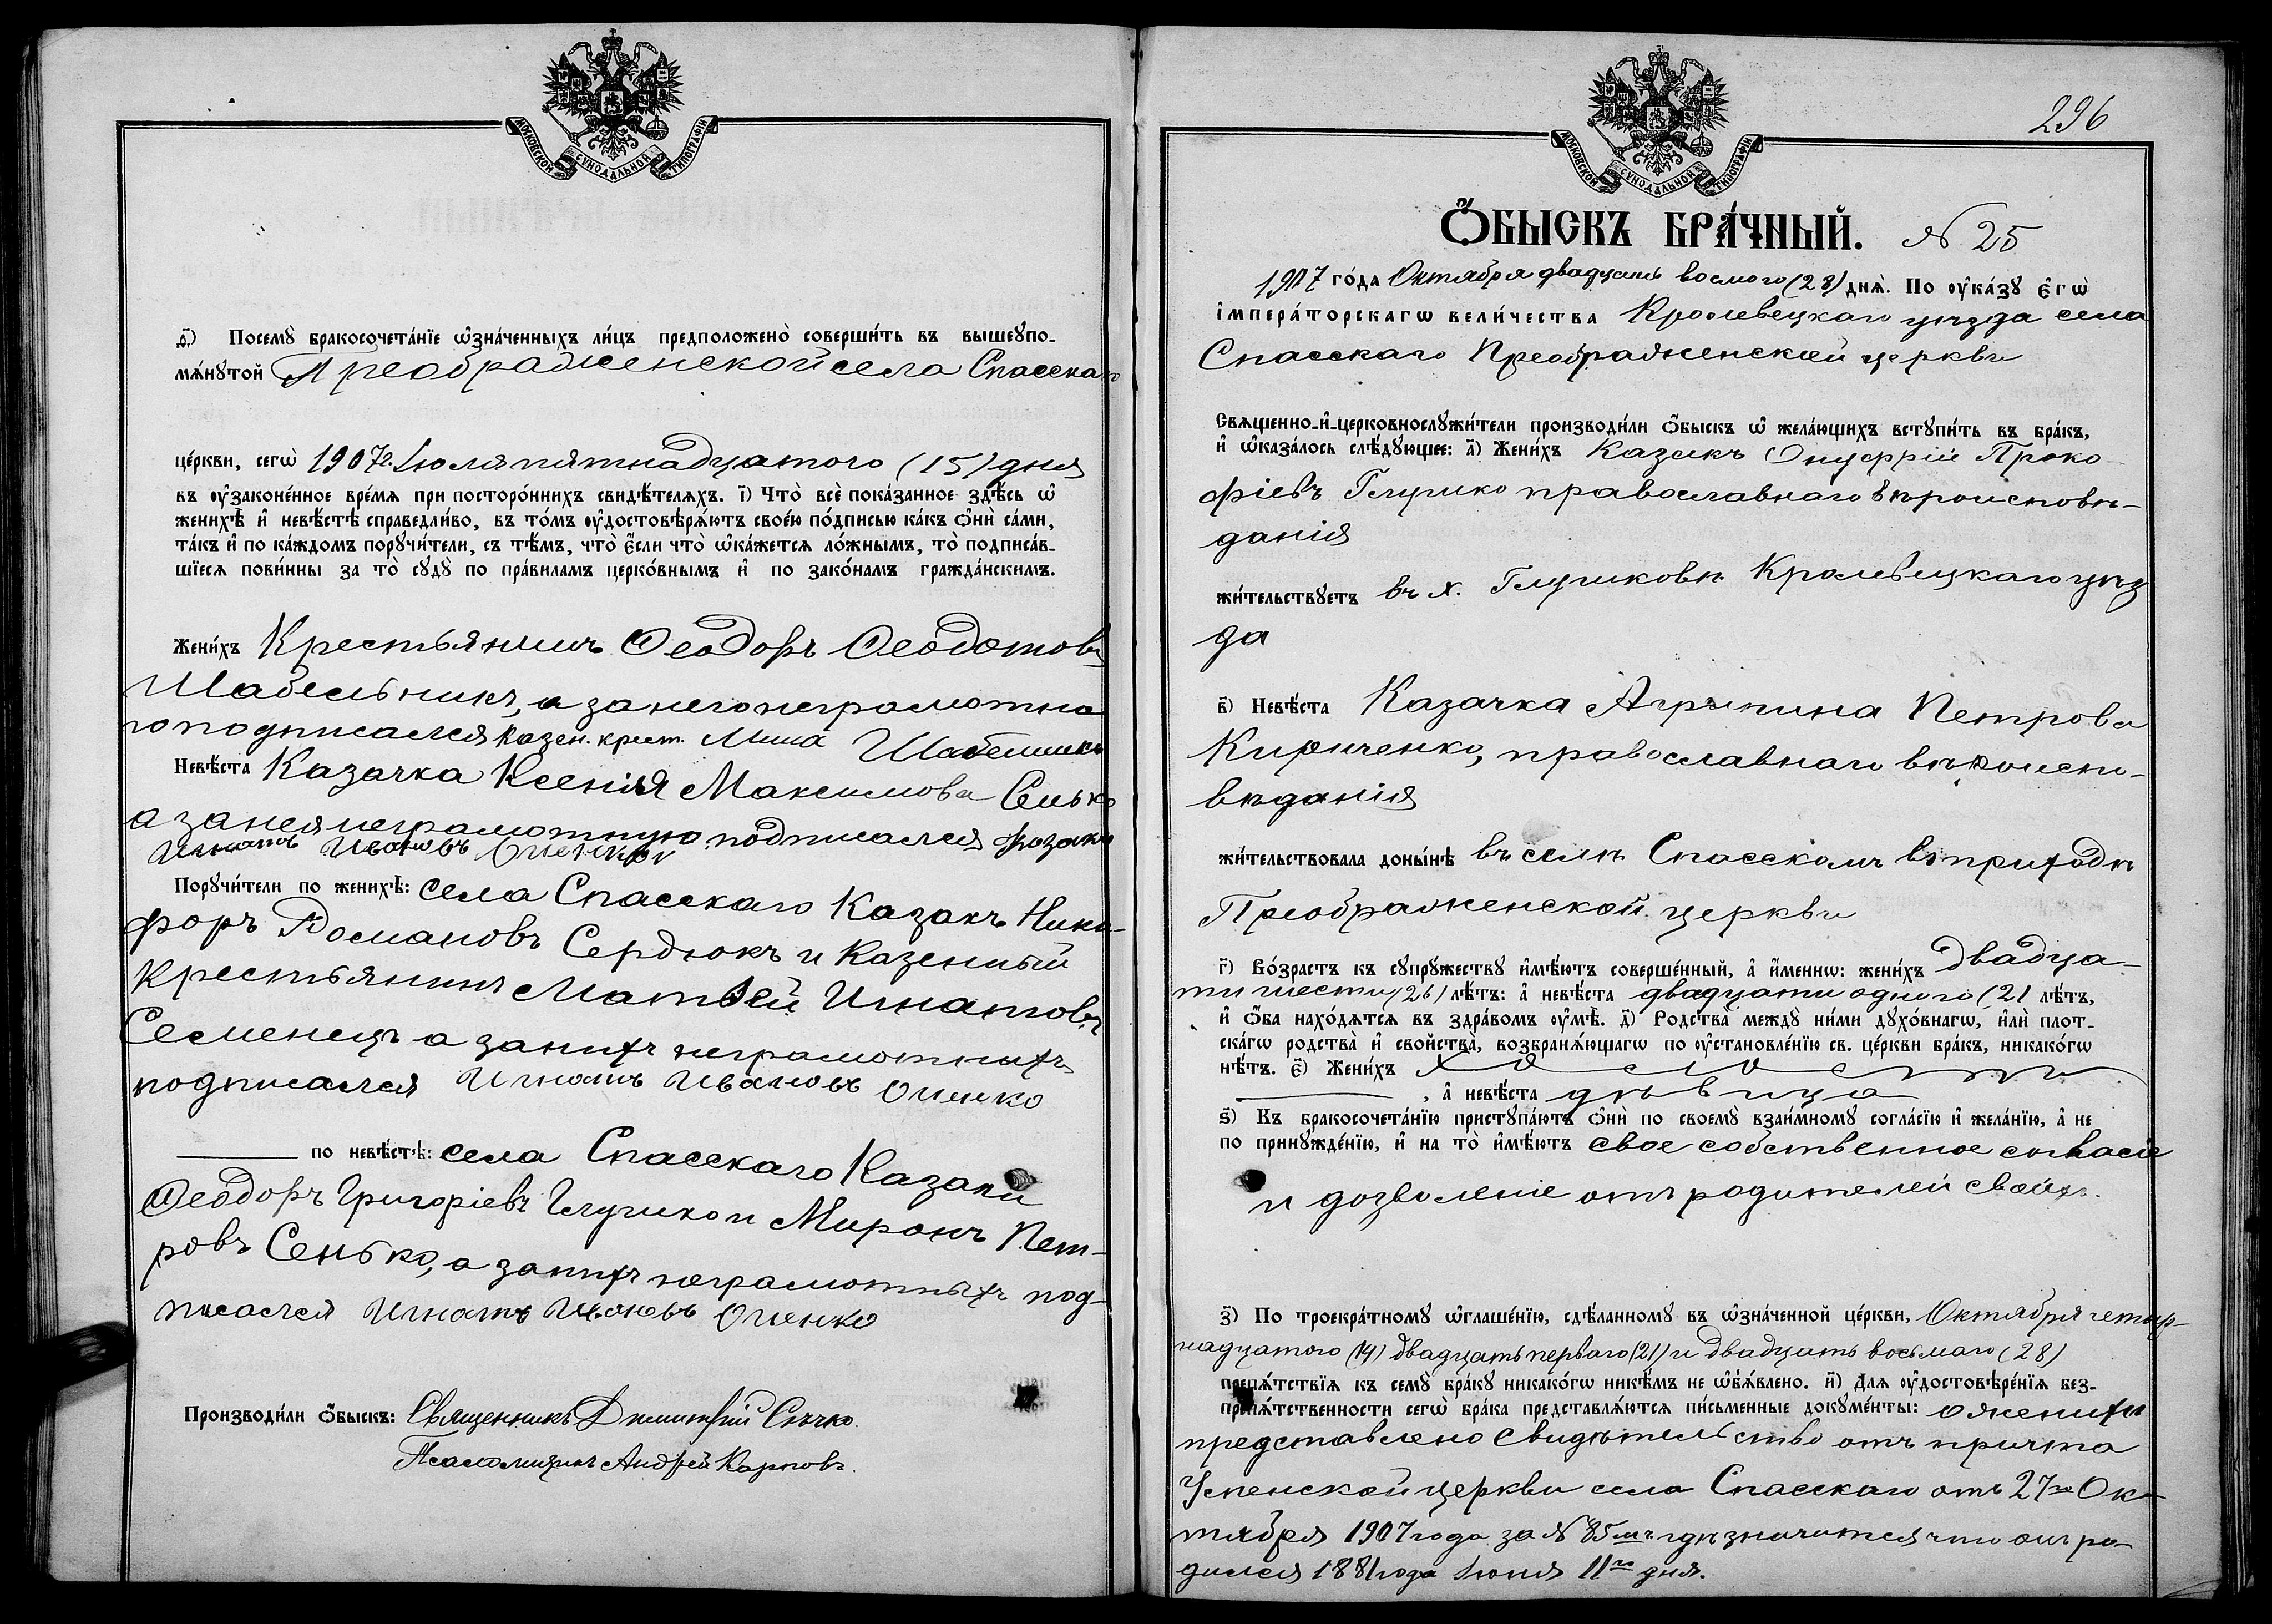 МОСКОВСКОЙ СѴНОДАЛЬНОЙ ТИПОГРАФІИ
д҃і) Посемꙋ̀ бракосочета́нїе ѡ҆зна́ченныхъ ли́цъ предположено̀ соверши́ть въ вышеꙋпо-
мѧ́нꙋтой Преображенской села Спасскаго
це́ркви, сегѡ̀ 1907 г. Іюля пятнадцатого (15) дня
въ ᲂу҆законе́нное вре́мѧ при посторо́ннихъ свидѣ́телѧхъ. і҃) Что̀ всѐ пока́занное здѣ́сь ѡ҆
женихѣ̀ и҆ невѣ́стѣ справедли́во, въ то́мъ ᲂу҆достовѣрѧ́ютъ свое́ю по́дписью ка́къ ѻ҆нѝ са́ми,
та́къ и҆ по ка́ждомъ порꙋчи́тели, съ тѣ́мъ, что̀ є҆́сли что̀ ѡ҆ка́жетсѧ ло́жнымъ, то̀ подписа́в-
шїесѧ пови́нны за то̀ сꙋдꙋ̀ по пра́виламъ церко́внымъ и҆ по зако́намъ гражда́нскимъ.
Жени́хъ Крестьянинъ Ѳеодоръ Ѳеодотовъ
Шабельникъ, а за него неграмотна
го подписался казен. крест. Шабельникъ
Невѣ́ста Казачка Ксенія Максимова Сенько
а за нея неграмотную подписался казакъ
Игнатъ Ивановъ Оненко
Порꙋчи́тели по женихѣ̀: села Спасскаго Казакъ Ники-
форъ Романовъ Сердюкъ и Казенный
Крестьянинъ Матвей Игнатовъ
Семенецъ а за нихъ неграмотныхъ
подписался Игнатъ Ивановъ Оненко
по невѣ́стѣ: села Спасскаго Казаки
Ѳеодоръ Григоріевъ Глушко и Миронъ Пет-
ровъ Сенько, а за нихъ неграмотныхъ под-
писался Игнатъ Ивановъ Оненко
Производи́ли ѻ҆́быскъ: Священникъ Димитрій Сѣчко.
Псаломщикъ Андрей Карповъ.
МОСКОВСКОЙ СѴНОДАЛЬНОЙ ТИПОГРАФІИ
296
Ѻ҆́БЫСКЪ БРА́ЧНЫЙ. № 25
1907 го́да Октября двадцать восмого (28) днѧ̀. По ᲂу҆ка́зꙋ є҆гѡ̀
і҆мпера́торскагѡ вели́чества Кролевецкаго уѣзда села
Спасскаго Преображенской церкви
Свѧщенно-и҆-церковнослꙋжи́тели производи́ли ѻ҆́быскъ ѡ҆ жела́ющихъ встꙋпи́ть въ бра́къ,
и҆ ѡ҆каза́лось слѣ́дꙋющее: а҃) Жени́хъ Казакъ Онуфрій Проко-
фіевъ Глушко православнаго вѣроисповѣ-
данія
жи́тельствꙋетъ въ х. Глушковѣ Кролевецкаго уѣз
да
в҃) Невѣ́ста Казачка Агрипина Петрова
Кириченко, православнаго вѣроиспо-
вѣданія
жи́тельствовала доны́нѣ въ селѣ Спасскомъ въ приходѣ
Преображенской церкви
г҃) Во́зрастъ къ сꙋпрꙋ́жествꙋ и҆мѣ́ютъ соверше́нный, а҆ и҆́меннѡ: жени́хъ двадца-
ти шести (26) лѣ́тъ: а҆ невѣ́ста двадцати одного (21 лѣ́тъ,
и҆ ѻ҆́ба нахо́дѧтсѧ въ здра́вомъ ᲂу҆мѣ̀. д҃) Родства̀ междꙋ̀ ни́ми дꙋхо́внагѡ, и҆лѝ плот-
ска́гѡ родства̀ и҆ сво́йства̀, возбранѧ́ющагѡ по ᲂу҆становле́нїю св. це́ркви бра́къ, никако́гѡ
нѣ́тъ. є҃) Жени́хъ холостъ
, а҆ невѣ́ста дѣвица
ѕ҃) Къ бракосочета́нїю пристꙋпа́ютъ ѻ҆нѝ по своемꙋ̀ взаи́мномꙋ согла́сїю и҆ жела́нїю, а҆ не
по принꙋжде́нїю, и҆ на то̀ и҆мѣ́ютъ свое собственное согласіе
и дозволеніе отъ родителей своихъ.
з҃) По троекра́тномꙋ ѡ҆глаше́нїю, сдѣ́ланномꙋ въ ѡ҆зна́ченной це́ркви, Октября четыр-
надцатого (14) двадцать перваго (21) и двадцать восьмаго (28)
препѧ́тствїѧ къ семꙋ̀ бра́кꙋ никако́гѡ никѣ́мъ не ѡ҆б̾ѧ́влено. и҃) Длѧ̀ ᲂу҆достовѣре́нїѧ без-
препѧ́тственности сегѡ̀ бра́ка представлѧ́ютсѧ пи́сьменные докꙋме́нты: о женихѣ
представлено свидѣтельство отъ причта
Успенской церкви села Спасскаго отъ 27го Ок-
тября 1907 года за № 85мъ гдѣ значится что онъ ро-
дился 1881 года Іюня 11го дня.